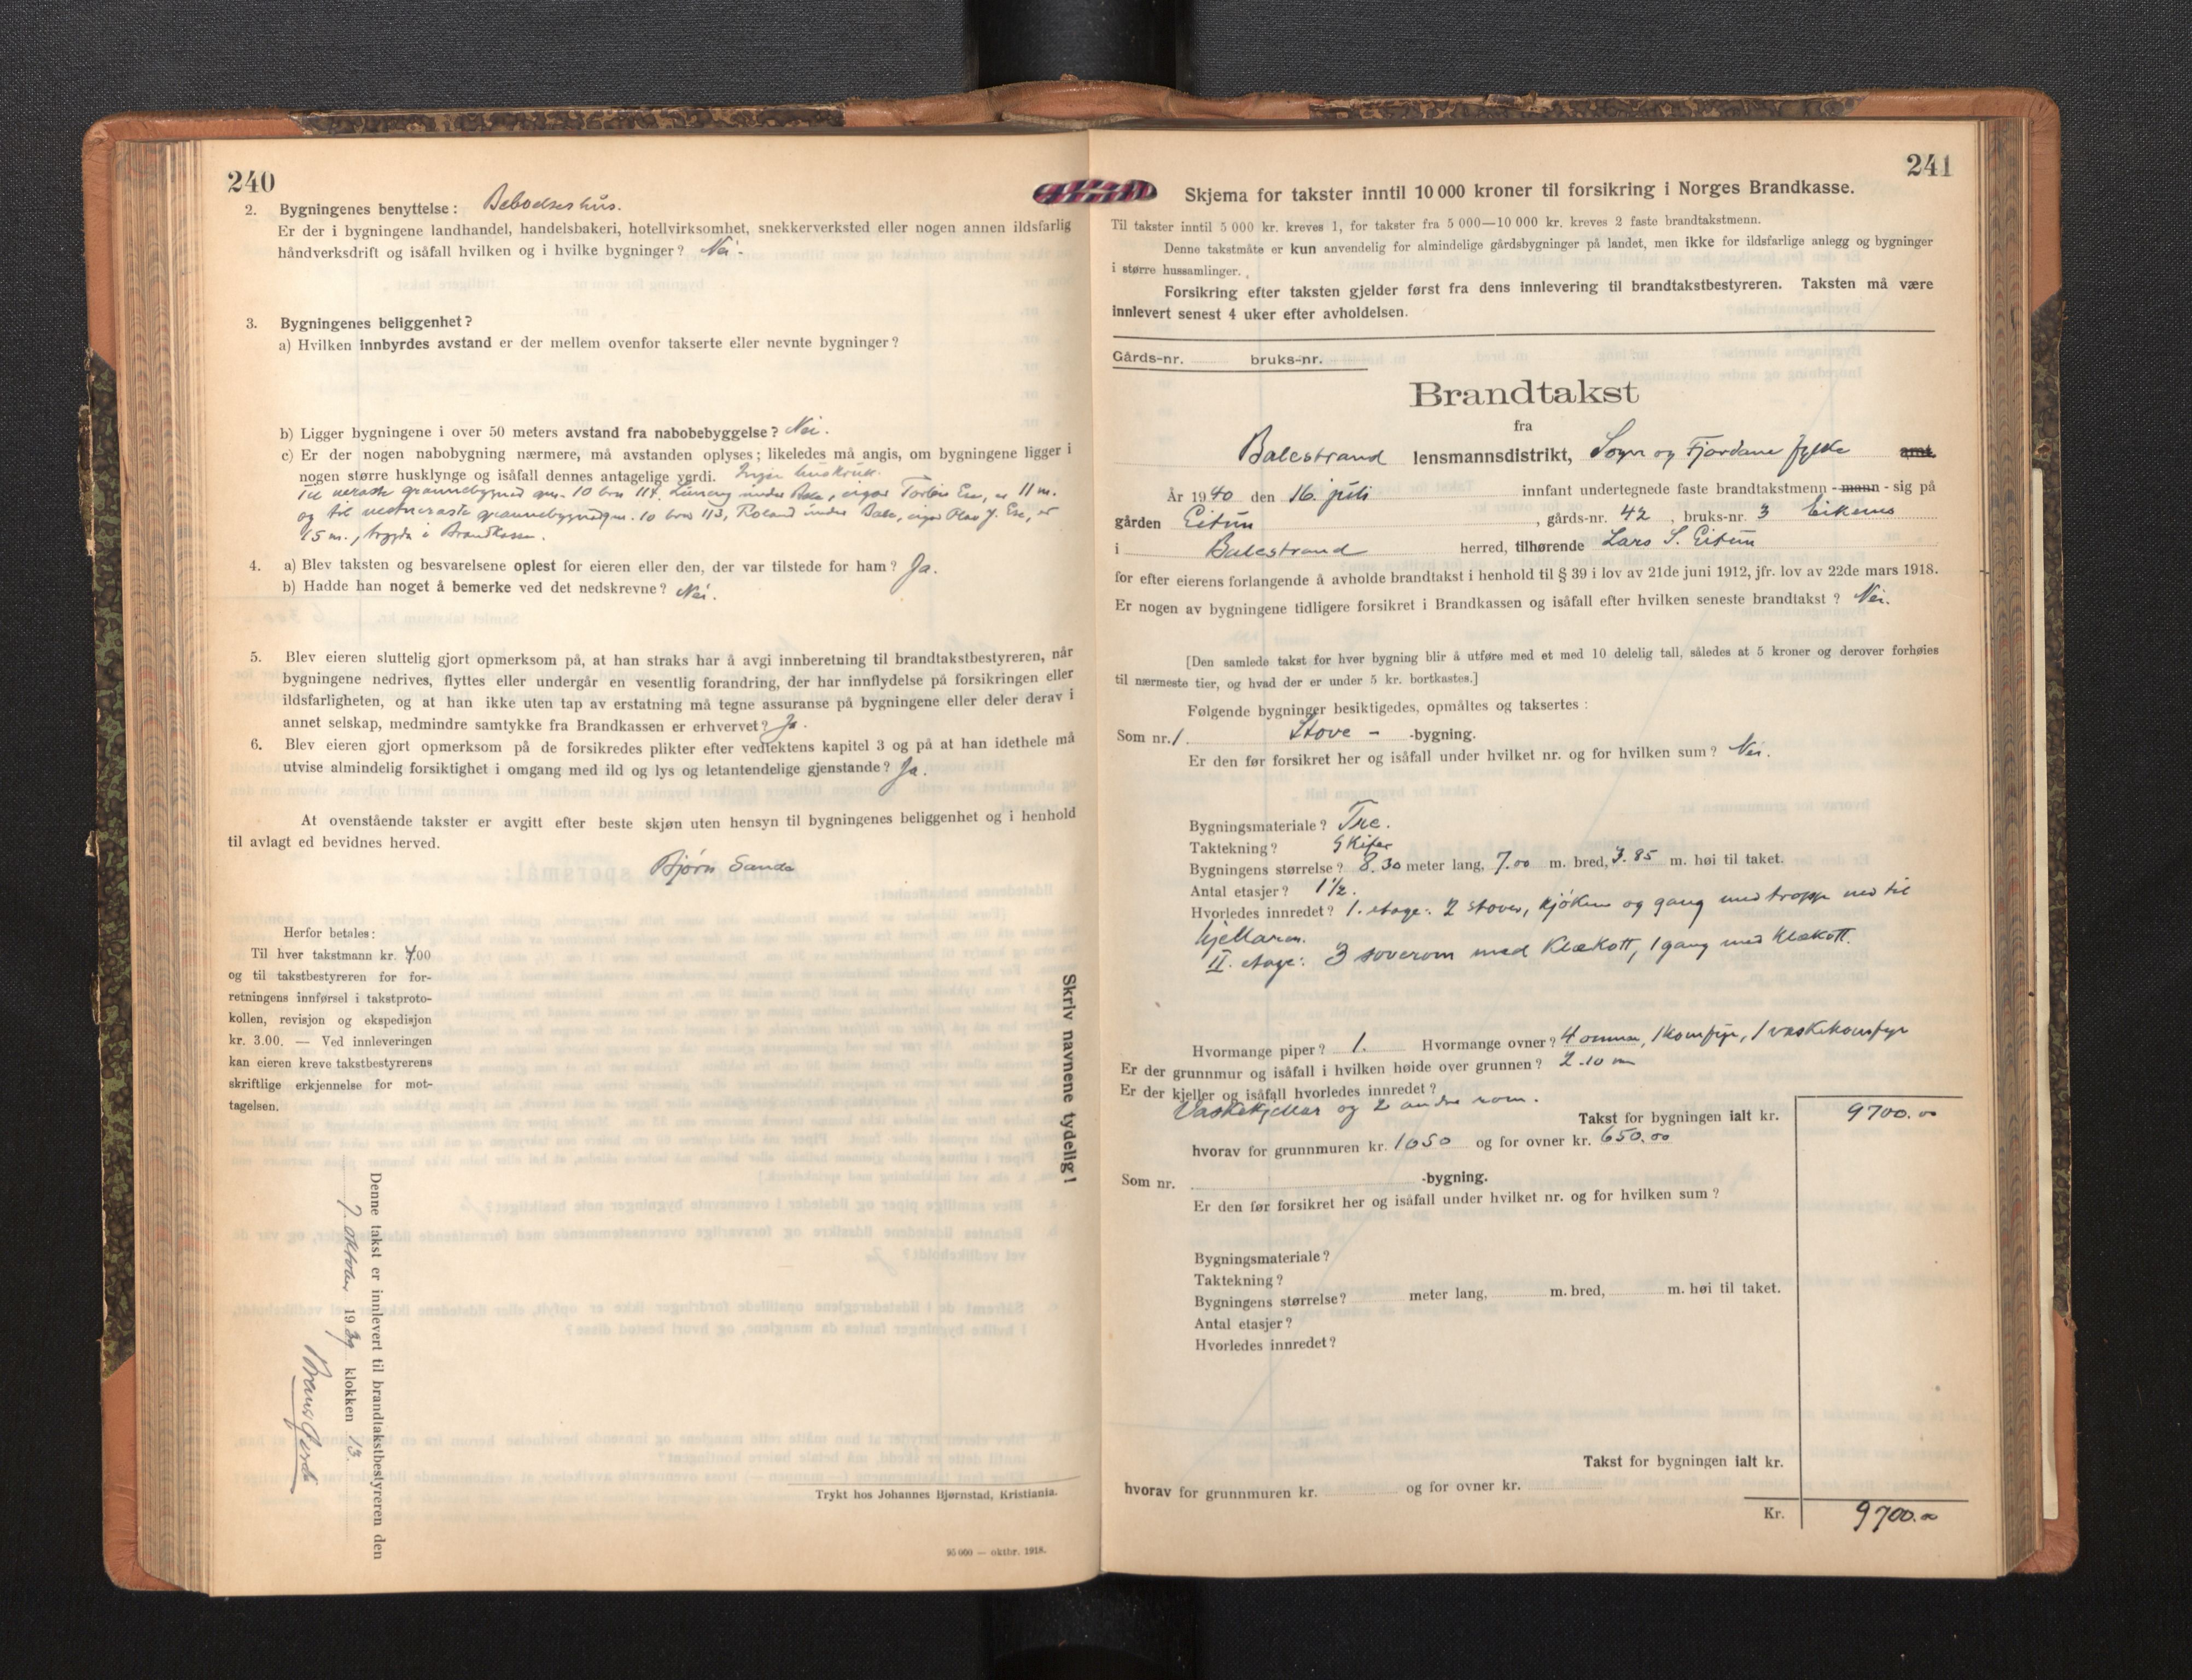 240
2. Bygningenes benyttelse: Beboelseshus.
Er der i bygningene landhandel, handelsbakeri, hotellvirksomhet, snekkerverksted eller nogen annen ildsfarlig
håndverksdrift og isåfall hvilken og i hvilke bygninger? Nei.
3. Bygningenes beliggenhet?
a) Hvilken innbyrdes avstand er der mellem ovenfor takserte eller nevnte bygninger?
b) Ligger bygningene i over 50 meters avstand fra nabobebyggelse? Nei.
c) Er der nogen nabobygning nærmere, må avstanden oplyses; likeledes må angis, om bygningene ligger i
nogen større husklynge og isåfall dennes antagelige verdi. Ingen
Til næraste grannebygnad gnr. 10 bnr 117, under Bale, eigar Torleiv Ese, er 11 m.
og til nestnæraste grannebygnad gnr. 10 bnr 113, Roland under Bale, eigar Olav J. Ese, er
15 m., trygda i Brandkassen.
4. a) Blev taksten og besvarelsene oplest for eieren eller den, der var tilstede for ham? Ja.
b) Hadde han noget å bemerke ved det nedskrevne? Nei.
5. Blev eieren sluttelig gjort opmerksom på, at han straks har å avgi innberetning til brandtakstbestyreren, når
bygningene nedrives, flyttes eller undergår en vesentlig forandring, der har innflydelse på forsikringen eller
ildsfarligheten, og at han ikke uten tap av erstatning må tegne assuranse på bygningene eller deler derav i
annet selskap, medmindre samtykke fra Brandkassen er erhvervet? Ja.
6. Blev eieren gjort opmerksom på de forsikredes plikter efter vedtektens kapitel 3 og på at han idethele må
utvise almindelig forsiktighet i omgang med ild og lys og letantendelige gjenstande? Ja.
At ovenstående takster er avgitt efter beste skjøn uten hensyn til bygningenes beliggenhet og i henhold
til avlagt ed bevidnes herved.
Bjørn Sande
Herfor betales:
Til hver takstmann kr. 4.00
og til takstbestyreren for for-
retningens innførsel i takstproto-
kollen, revisjon og ekspedisjon
kr. 3.00. — Ved innleveringen
kan eieren kreve takstbestyrerens
skriftlige erkjennelse for mot-
tagelsen.
Skriv navnene tydelig!
Denne takst er innlevert til brandtakstbestyreren den
7. oktober 1939 klokken 13.
Trykt hos Johannes Bjørnstad, Kristiania.
95 000 — oktbr. 1918.
241
Skjema for takster inntil 10 000 kroner til forsikring i Norges Brandkasse.
Til takster inntil 5 000 kr. kreves 1, for takster fra 5 000—10 000 kr. kreves 2 faste brandtakstmenn.
Denne takstmåte er kun anvendelig for almindelige gårdsbygninger på landet, men ikke for ildsfarlige anlegg og bygninger
i større hussamlinger.
Forsikring efter taksten gjelder først fra dens innlevering til brandtakstbestyreren. Taksten må være
innlevert senest 4 uker efter avholdelsen.
Gårds-nr. bruks-nr.
Brandtakst
fra
Balestrand lensmannsdistrikt, Sogn og Fjordane fylke amt.
År 1940 den 16. juli innfant undertegnede faste brandtakstmenn - mann - sig på
gården Eitun, gårds-nr. 42, bruks-nr. 3 Eikemo
i Balestrand herred, tilhørende Lars S. Eitun
for efter eierens forlangende å avholde brandtakst i henhold til § 39 i lov av 21de juni 1912, jfr. lov av 22de mars 1918.
Er nogen av bygningene tidligere forsikret i Brandkassen og isåfall efter hvilken seneste brandtakst? Nei.
[Den samlede takst for hver bygning blir å utføre med et med 10 delelig tall, således at 5 kroner og derover forhøies
til nærmeste tier, og hvad der er under 5 kr. bortkastes.]
Følgende bygninger besiktigedes, opmåltes og taksertes:
Som nr. 1. Stove - -bygning.
Er den før forsikret her og isåfall under hvilket nr. og for hvilken sum? Nei.
Bygningsmateriale? Tre.
Taktekning? Skifer
Bygningens størrelse? 8.30 meter lang, 7.00 m. bred, 3.85 m. høi til taket.
Antal etasjer? 1½.
Hvorledes innredet? 1. etage: 2 stover, kjøken og gang med tropp ned til
kjellaren.
II. etage: 3 soverom med Klækott, 1 gang med Klækott.
Hvormange piper? 1. Hvormange ovner? 4 omnar, 1 komfyr, 1 vaskekomfyr
Er der grunnmur og isåfall i hvilken høide over grunnen? 2.10 m
Er der kjeller og isåfall hvorledes innredet?
Vaskekjellar og 2 andre rom.
Takst for bygningen ialt kr. 9700.00
hvorav for grunnmuren kr. 1050 og for ovner kr. 650.00
Som nr. -bygning.
Er den før forsikret her og isåfall under hvilket nr. og for hvilken sum?
Bygningsmateriale?
Taktekning?
Bygningens størrelse? meter lang, m. bred, m. høi til taket.
Antal etasjer?
Hvorledes innredet?
Takst for bygningen ialt kr.
hvorav for grunnmuren kr. og for ovner kr.
Kr. 9700.00